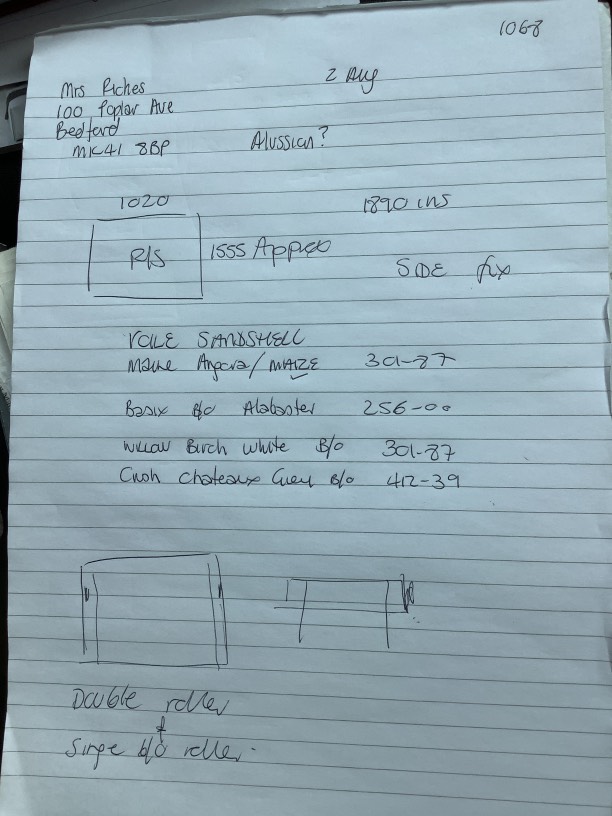 1068
2 Aug
Mrs Riches
100 Poplar Ave
Bedford
MK41 8BP
Alussian?
1020
1890 ins
R/S
1555 Approx
SIDE fix
VALE SANDSHELL
Angora/MAIZE 301-87
Basix B/O Alabaster 256-00
Willow Birch White B/O 301-87
Chateaux Grey B/O 412-39
Double roller
+
Singe b/o roller.